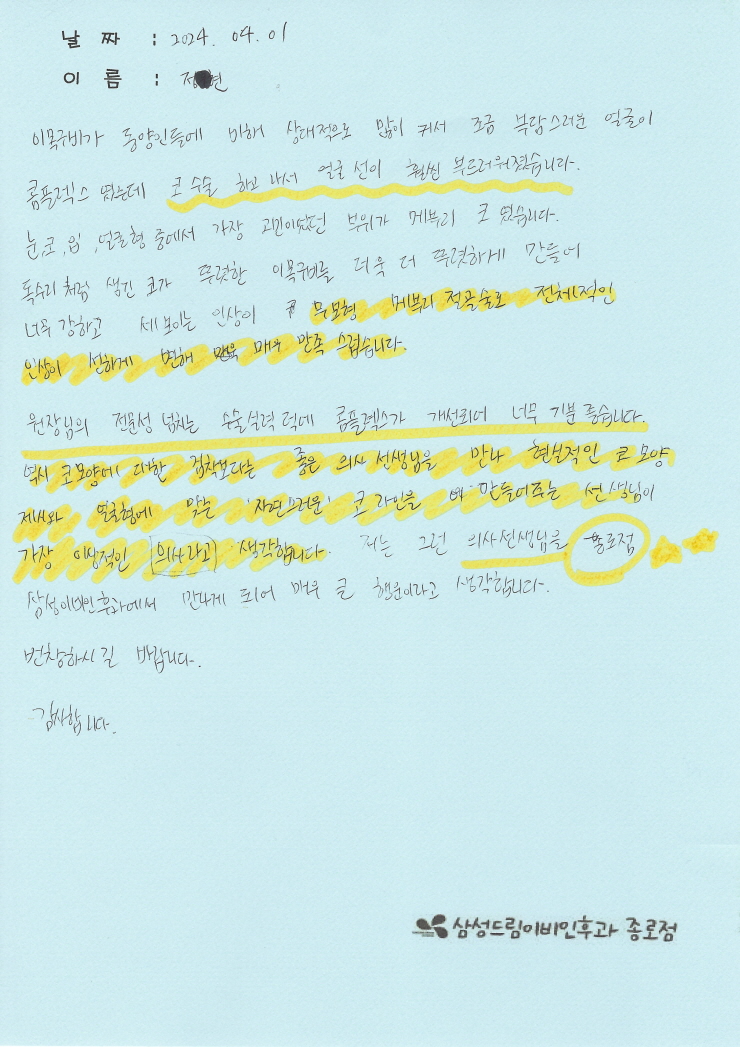 날 짜 : 2024. 04. 01
이 름 : 정 현
이목구비가 동양인들에 비해 상대적으로 많이 커서 조금 부담스러운 얼굴이
콤플렉스 였는데 코 수술 하고 나서 얼굴 선이 훨씬 부드러워졌습니다.
눈, 코, 입, 얼굴형 중에서 가장 고민이었던 부위가 메부리 코 였습니다.
독수리 처럼 생긴 코가 뚜렷한 이목구비를 더욱 더 뚜렷하게 만들어
너무 강하고 세 보이는 인상이 무보형 메부리 절골술로 전체적인
인상이 선하게 변해 매우 만족 스럽습니다.
원장님의 전문성 넘치는 수술실력 덕에 콤플렉스가 개선되어 너무 기분 좋습니다.
역시 코모양에 대한 집착보다는 좋은 의사 선생님을 만나 현실적인 코 모양
제시와 얼굴형에 맞는 '자연스러운' 코 라인을 만들어주는 선생님이
가장 이상적인 의사라고 생각합니다. 저는 그런 의사선생님을 종로점
삼성이비인후과에서 만나게 되어 매우 큰 행운이라고 생각합니다.
번창하시길 바랍니다.
감사합니다.
삼성드림이비인후과 종로점